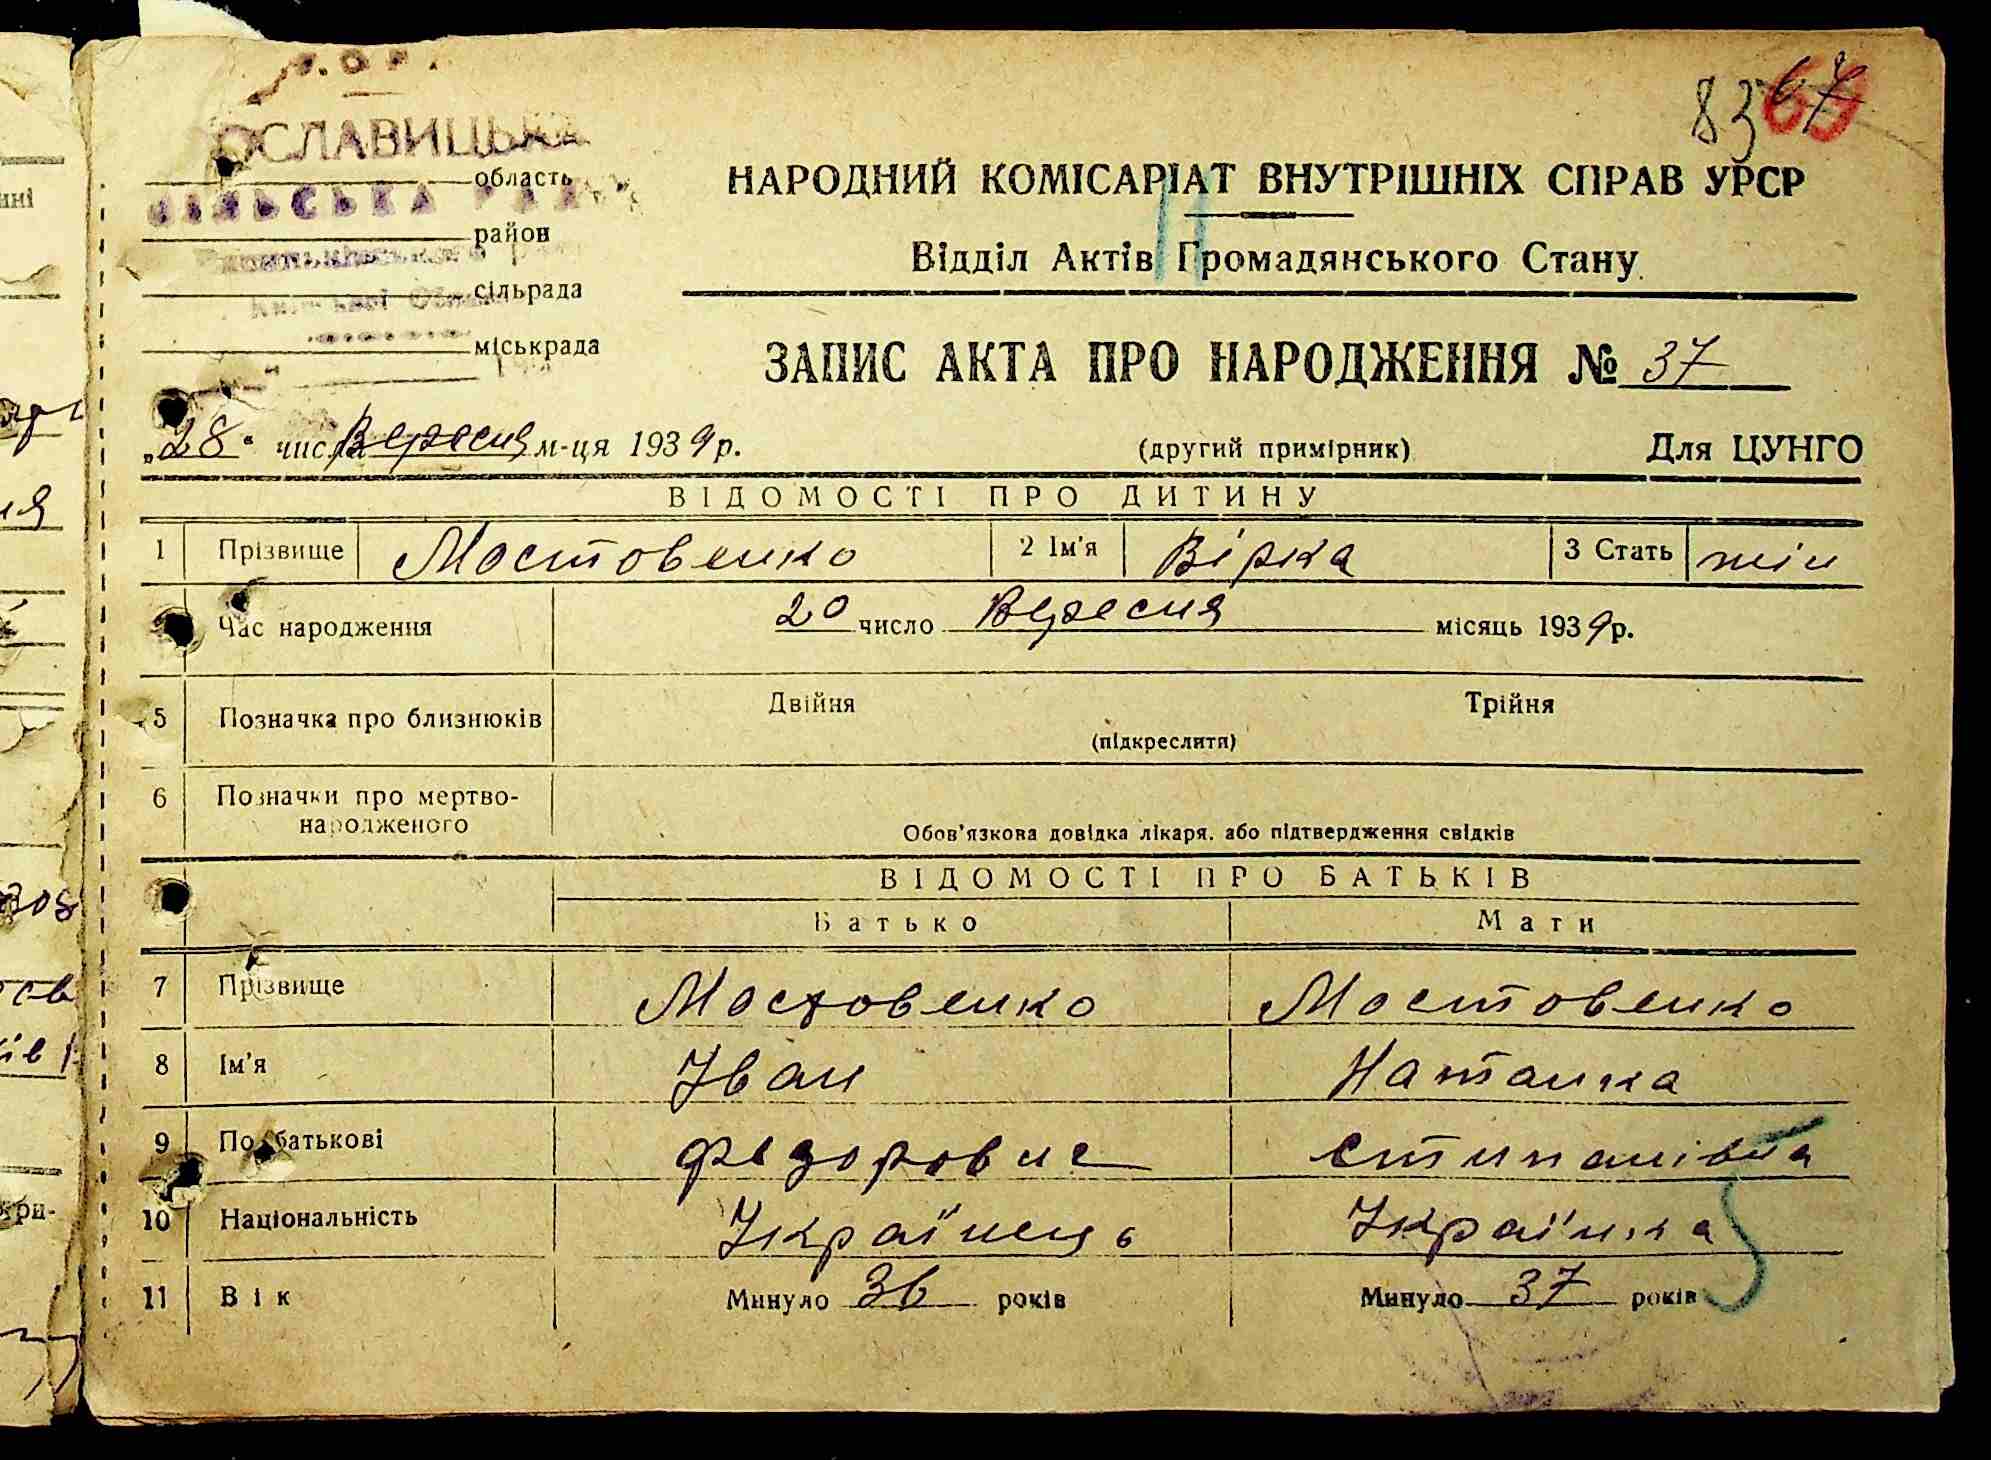 83 67
ОСЛАВИЦЬКА
область
СІЛЬСЬКА РАДА
район
сільрада
міськрада
НАРОДНИЙ КОМІСАРІАТ ВНУТРІШНІХ СПРАВ УРСР
Відділ Актів Громадянського Стану
ЗАПИС АКТА ПРО НАРОДЖЕННЯ № 37
„28" числа Вересня м-ця 1939 р. (другий примірник) Для ЦУНГО
ВІДОМОСТІ ПРО ДИТИНУ
1 Прізвище Мостовенко 2 Ім'я Вірка 3 Стать жін
Час народження 20 число Вересня місяць 1939 р.
5 Позначка про близнюків Двійня Трійня
(підкреслити)
6 Позначки про мертво-
народженого
Обов'язкова довідка лікаря, або підтвердження свідків
ВІДОМОСТІ ПРО БАТЬКІВ
Батько Мати
7 Прізвище Мостовенко Мостовенко
8 Ім'я Іван Наталка
9 По батькові Федорович Стипанівна
10 Національність Українець Українка
11 Вік Минуло 36 років Минуло 37 років